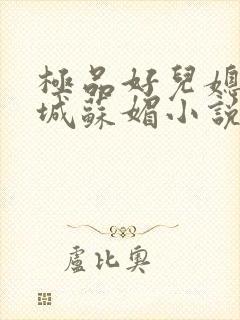 極品好兒媳
城蘇媚小說
盧比奧